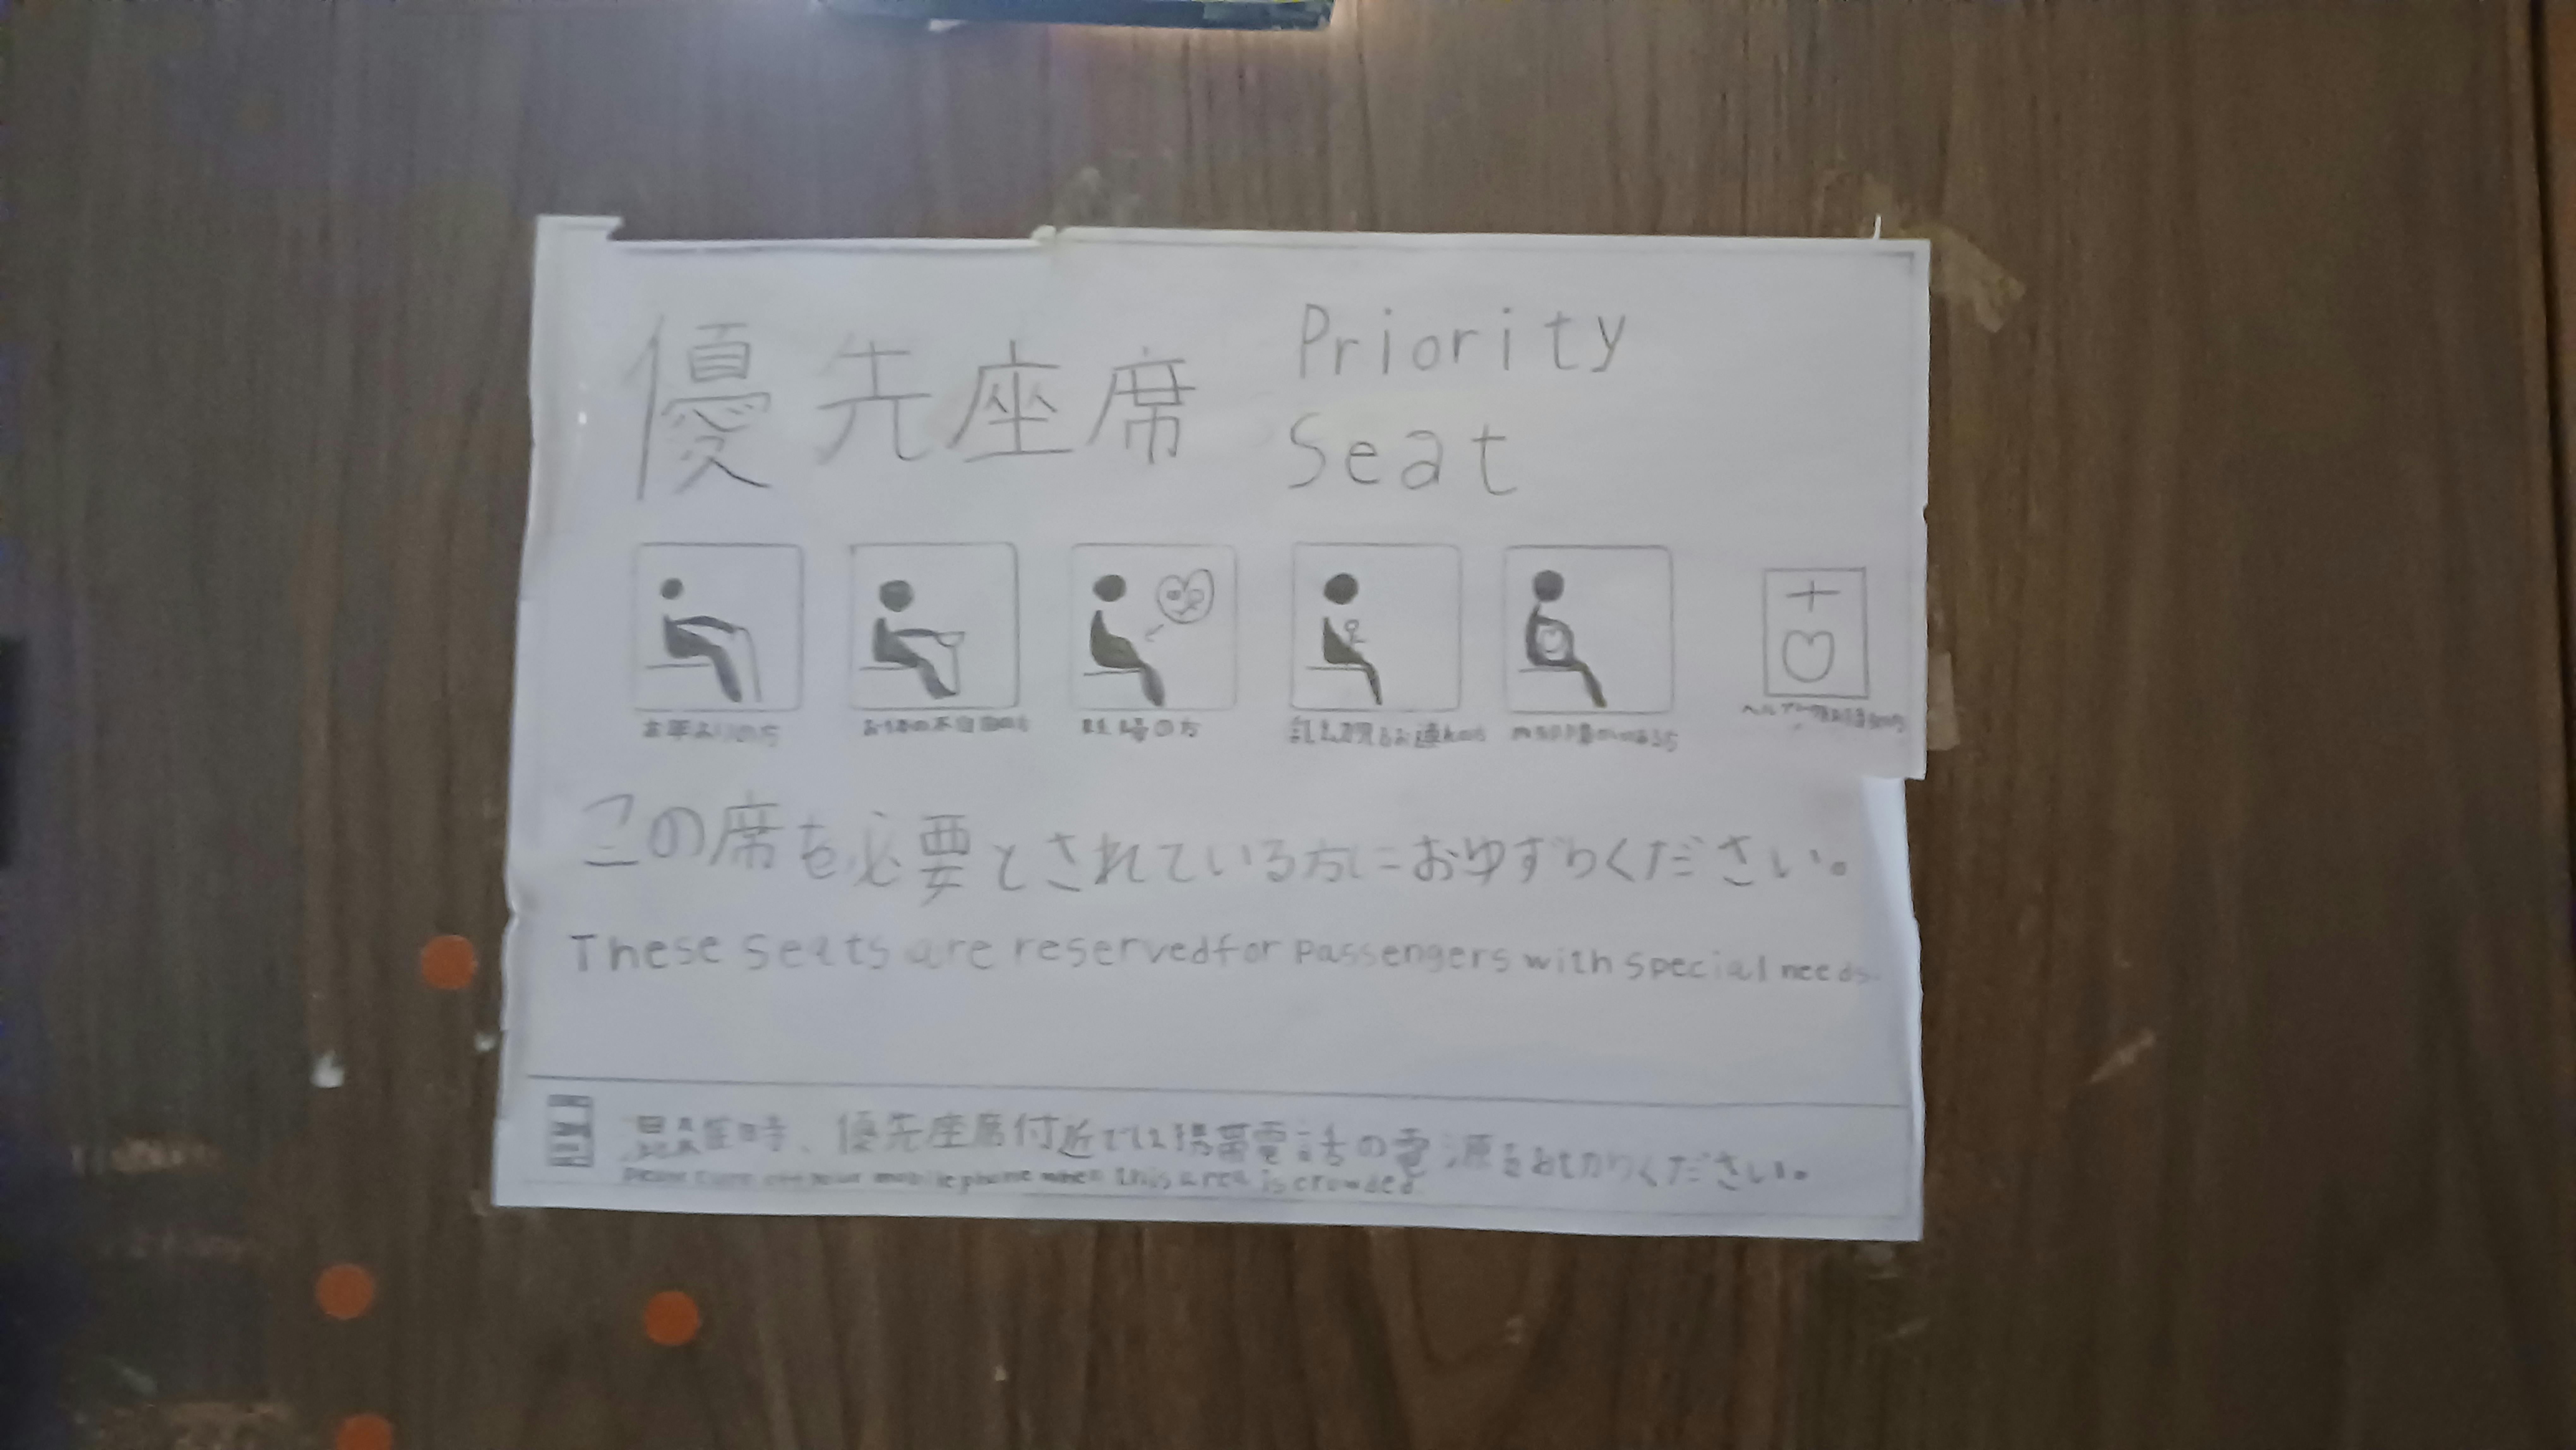 優先座席
Priority
Seat
お年よりの方
お体の不自由の方
妊婦の方
乳幼児をお連れの方
この席を必要とされている方におゆずりください。
These seats are reserved for passengers with special needs.
混雑時、優先座席付近では携帯電話の電源をお切りください。
Please turn off your mobile phone when this area is crowded.